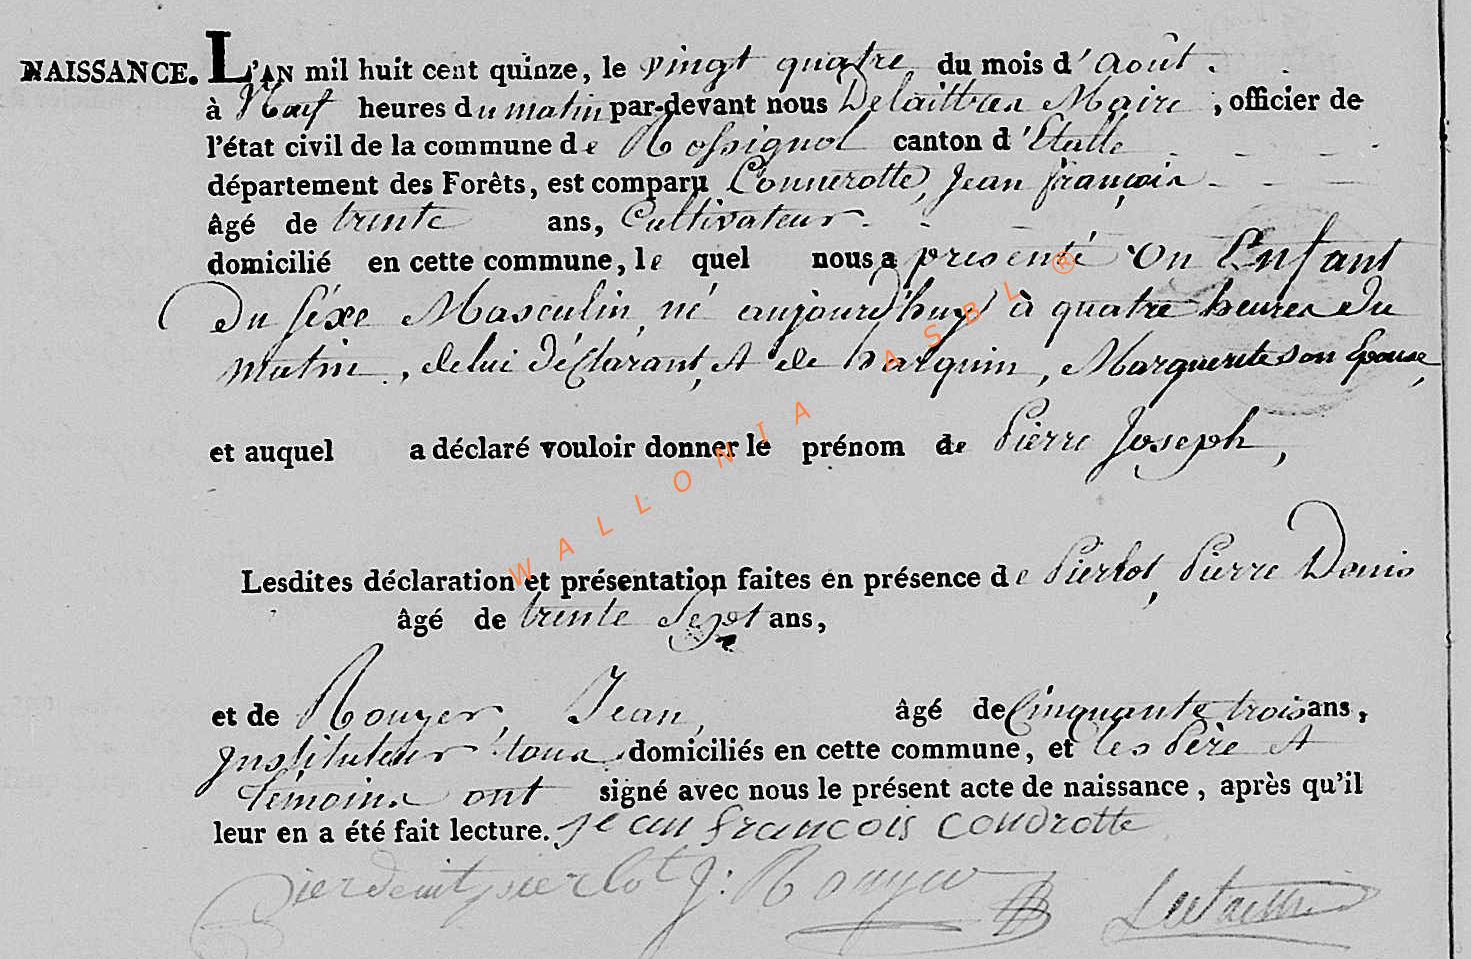 NAISSANCE. L'AN mil huit cent quinze, le vingt quatre du mois d'août.
à Neuf heures du matin par-devant nous Delaittres Maire, officier de
l'état civil de la commune de Rossignol canton d'Etalle
département des Forêts, est comparu Connerotte, Jean françois
âgé de trente ans, Cultivateur.
domicilié en cette commune, le quel nous a presenté un Enfant
Du séxe Masculin, né aujourd'huy à quatre heures du
matin, de lui déclarant, et de harquin, Marguerite son Epouse,
et auquel a déclaré vouloir donner le prénom de Pierre Joseph,
Lesdites déclaration et présentation faites en présence de Pierlot, Pierre Denis
âgé de trente Sept ans,
et de Rouyer, Jean, âgé de Cinquante trois ans,
Instituteur tous domiciliés en cette commune, et les Père et
témoins ont signé avec nous le présent acte de naissance, après qu'il
leur en a été fait lecture. jean francois conrotte
pierlot J: Rouyer
WALLONIA ASBL ®